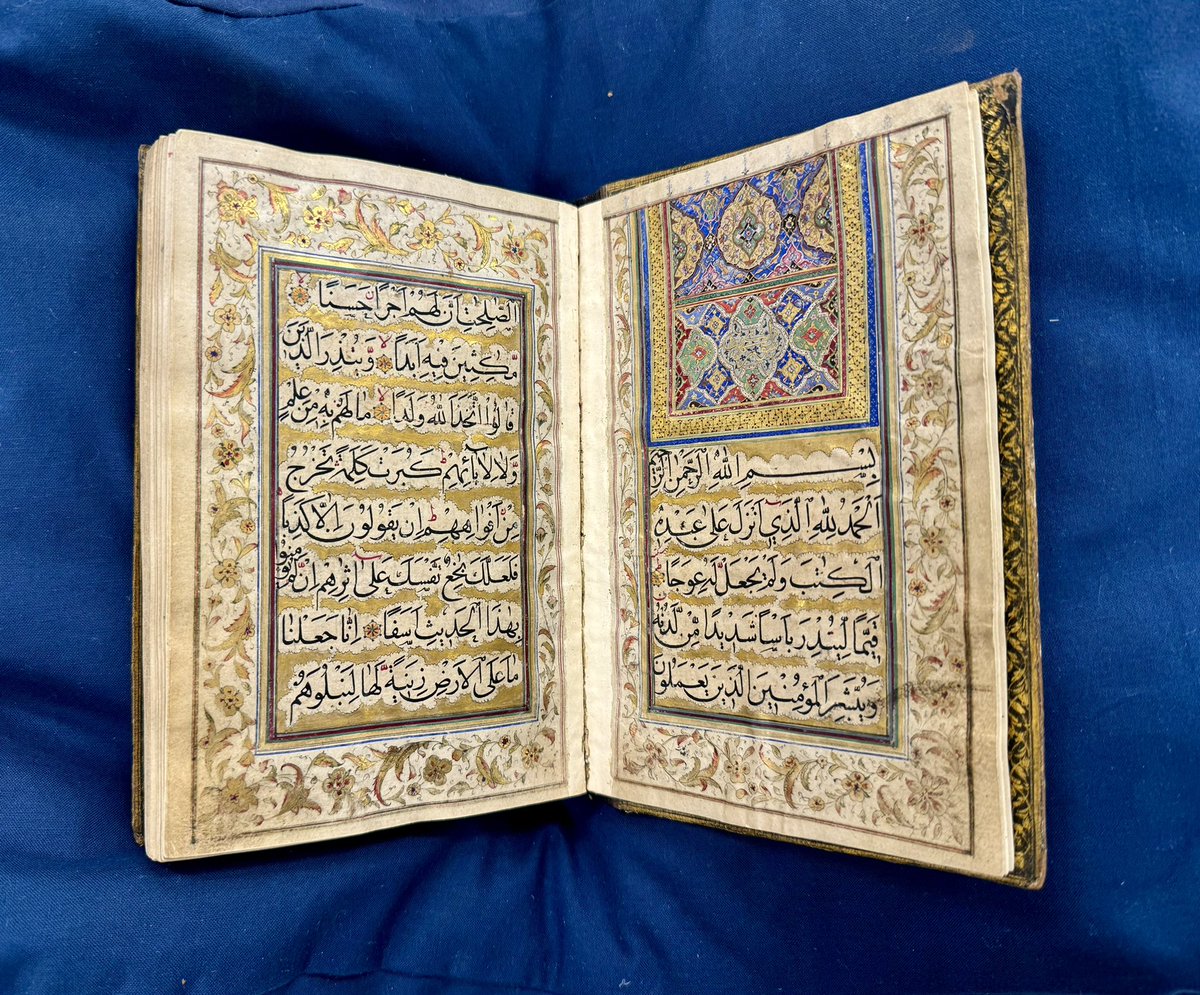 بِسْمِ اللّٰهِ الرَّحْمٰنِ الرَّحِيمِ
اَلْحَمْدُ لِلّٰهِ الَّذِي اَنْزَلَ عَلٰى عَبْدِهِ
الْكِتٰبَ وَلَمْ يَجْعَلْ لَهُ عِوَجًا
قَيِّمًا لِيُنْذِرَ بَاْسًا شَدِيدًا مِنْ لَدُنْهُ
وَيُبَشِّرَ الْمُؤْمِنِينَ الَّذِينَ يَعْمَلُونَ
الصّٰلِحٰتِ اَنَّ لَهُمْ اَجْرًا حَسَنًا
مٰكِثِينَ فِيهِ اَبَدًا وَيُنْذِرَ الَّذِينَ
قَالُوا اتَّخَذَ اللّٰهُ وَلَدًا مَا لَهُمْ بِهِ مِنْ عِلْمٍ
وَلَا لِاٰبَائِهِمْ كَبُرَتْ كَلِمَةً تَخْرُجُ
مِنْ اَفْوَاهِهِمْ اِنْ يَقُولُونَ اِلَّا كَذِبًا
فَلَعَلَّكَ بٰخِعٌ نَفْسَكَ عَلٰى اٰثٰرِهِمْ اِنْ لَمْ يُؤْمِنُوا
بِهٰذَا الْحَدِيثِ اَسَفًا اِنَّا جَعَلْنَا
مَا عَلَى الْاَرْضِ زِينَةً لَهَا لِنَبْلُوَهُمْ